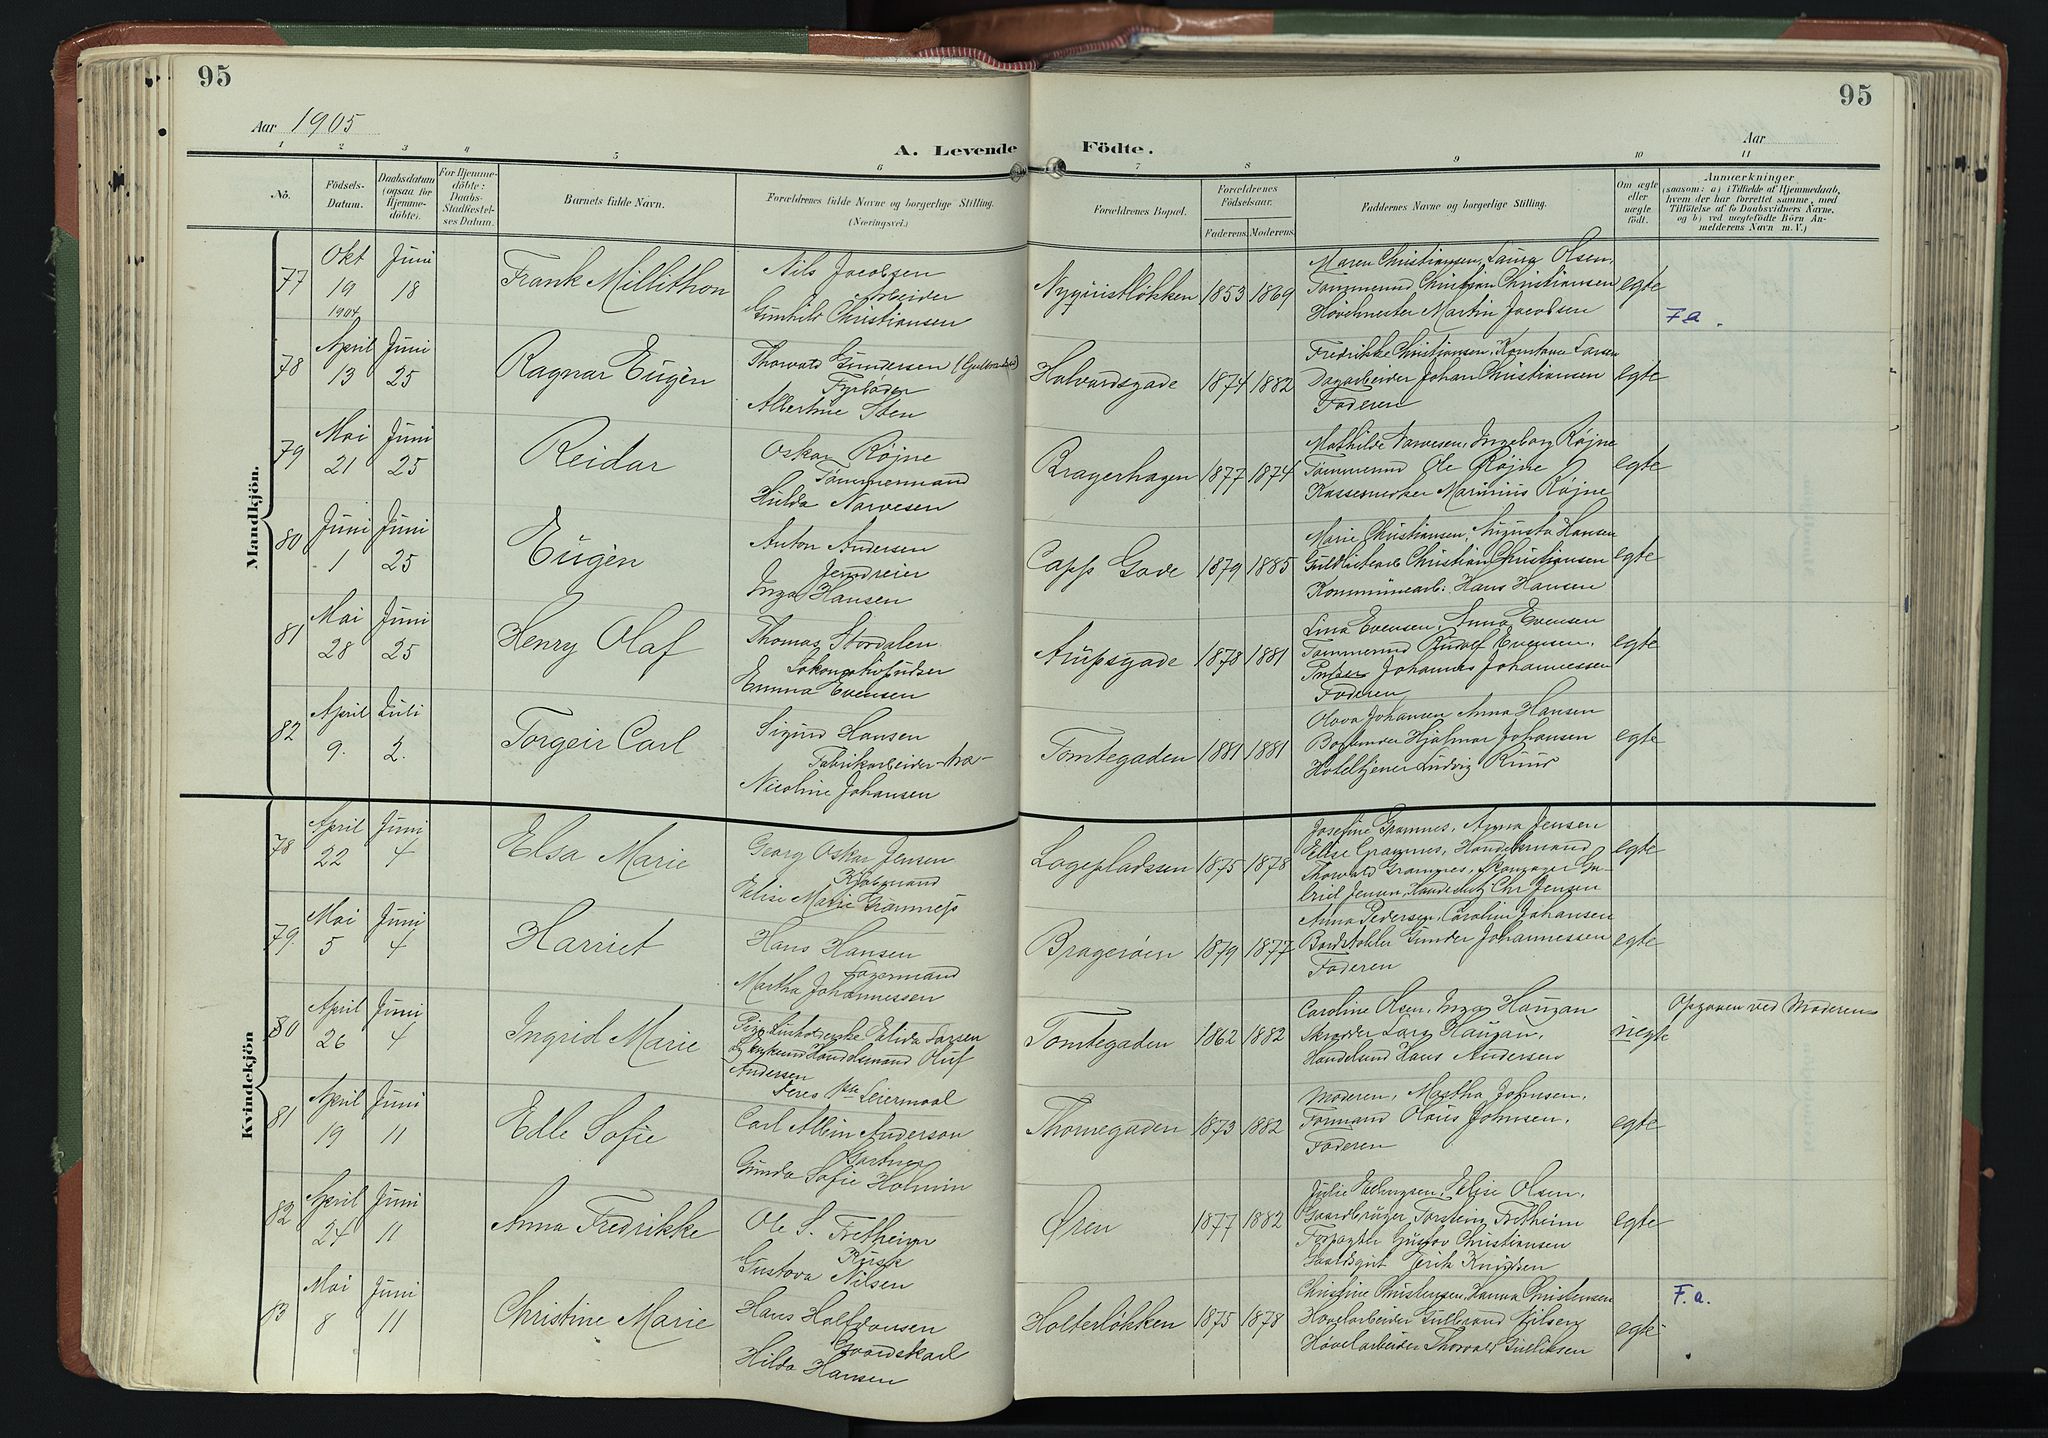 95
95
Aar 1905
Aar
A. Levende Födte.
1 2 3 4 5 6 7 8 9 10 11
No.
Födsels-Datum.
Daabsdatum (ogsaa for Hjemmedöbte).
For Hjemmedöbte: Daabs-Stadfæstelses Datum.
Barnets fulde Navn.
Forældrenes fulde Navne og borgerlige Stilling.
(Næringsvei.)
Forældrenes Bopæl.
Forældrenes Födselsaar.
Faderens. Moderens.
Faddernes Navne og borgerlige Stilling.
Om ægte eller uægte födt.
Anmærkninger
(saasom: a) i Tilfælde af Hjemmedaab, hvem der har forrettet samme, med Tilföielse af to Daabsvidners Navne, og b) ved uægtefödte Börn Anmelderens Navn m. V.)
Mandkjön.
77 Okt 19 1904 Juni 18 Frank Millithon
Nils Jacobsen
Arbeider
Gunhild Christiansen
Nyquistløkken 1853 1869
Maren Christiansen, Laura Olsen,
Tømmermnd Christian Christiansen
Høvelmester Martin Jacobsen
egte
F.a.
78 April 13 Juni 25 Ragnar Eugen
Thorvald Gundersen
Fyrbøder
Albertine Steen
Halvardsgade 1874 1882
Fredrikke Christiansen, Konstance Larsen
Dagarbeider Johan Christiansen
Faderen
egte
79 Mai 21 Juni 25 Reidar
Oskar Røjne
Tømmermand
Hulda Narvesen
Bragerhagen 1877 1874
Mathilde Narvesen, Ingeborg Røjne
Tømmermnd Ole Røjne
Marinius Røjne
egte
80 Juni 1 Juni 25 Eugen
Anton Andersen
Jerndreier
Inga Hansen
Capp. Gade 1879 1885
Marie Christiansen, Augusta Hansen
Christian Christiansen
Kommunearb: Hans Hansen
egte
81 Mai 28 Juni 25 Henry Olaf
Thomas Stordalen
Emma Evensen
Arupsgade 1878 1881
Lina Evensen, Anna Evensen
Tømmermnd Rudolf Evensen,
Pudser Johannes Johannessen
Faderen
egte
82 April 9. Juli 2. Torgeir Carl
Sigurd Hansen
Fabrikarbeider
Nicoline Johansen
Tomtegaden 1881 1881
Olava Johansen Anna Hansen
Hjalmar Johansen
Hoteltjener Ludvig Ruud
egte
Kvindekjön
78 April 22 Juni 4 Elsa Marie
Georg Oskar Jensen
Kjøbmand
Elise Marie Gramness
Lagepladssen 1875 1878
Josefine Gramnes, Anna Jensen
Elise Gramnes, Handelsmand
Thorvald Gramnes, Skougager Ga-
briel Jensen, Chr Jensen
egte
79. Mai 5 Juni 4 Harriet
Hans Hansen
Lagermand
Martha Johannessen
Bragerøen 1879 1877
Anna Pedersen, Caroline Johansen
Bordstabler Gunder Johannessen
Faderen
egte
80 April 26 Juni 4 Ingrid Marie
Elida Larsen
og Handelsmand Oluf
Andersen
Leiermaal
Tomtegaden 1862 1882
Caroline Olsen, Inga Haugan
Skrædder Lars Haugan,
Handelsmd Hans Andersen
uegte
Opgaven ved Moderen
81 April 19 Juni 11 Edle Sofie
Carl Albin Anderson
Gartner
Gunda Sofie Holmin
Thornegaden 1873 1882
Moderen, Martha Johnsen,
Formand Olaus Johnsen,
Faderen
egte
82 April 24 Juni 11 Anna Fredrikke
Ole S. Fretheim
Kusk
Gustava Nilsen
Øren 1877 1882
Julie Elise Olsen,
Gaardbruger Torstein Fretheim
Forpagter Gustav Christiansen
Erik Knudsen
egte
83 Mai 8 Juni 11 Christine Marie
Hans Halfdansen
Gaardskarl
Hilda Hansen
Holterløkken 1875 1878
Christine Christensen, Hanna Christensen
Høvelarbeider Gulbrand Nilsen
Høvelarbeider Thorvald Gulliksen
egte
F.a.